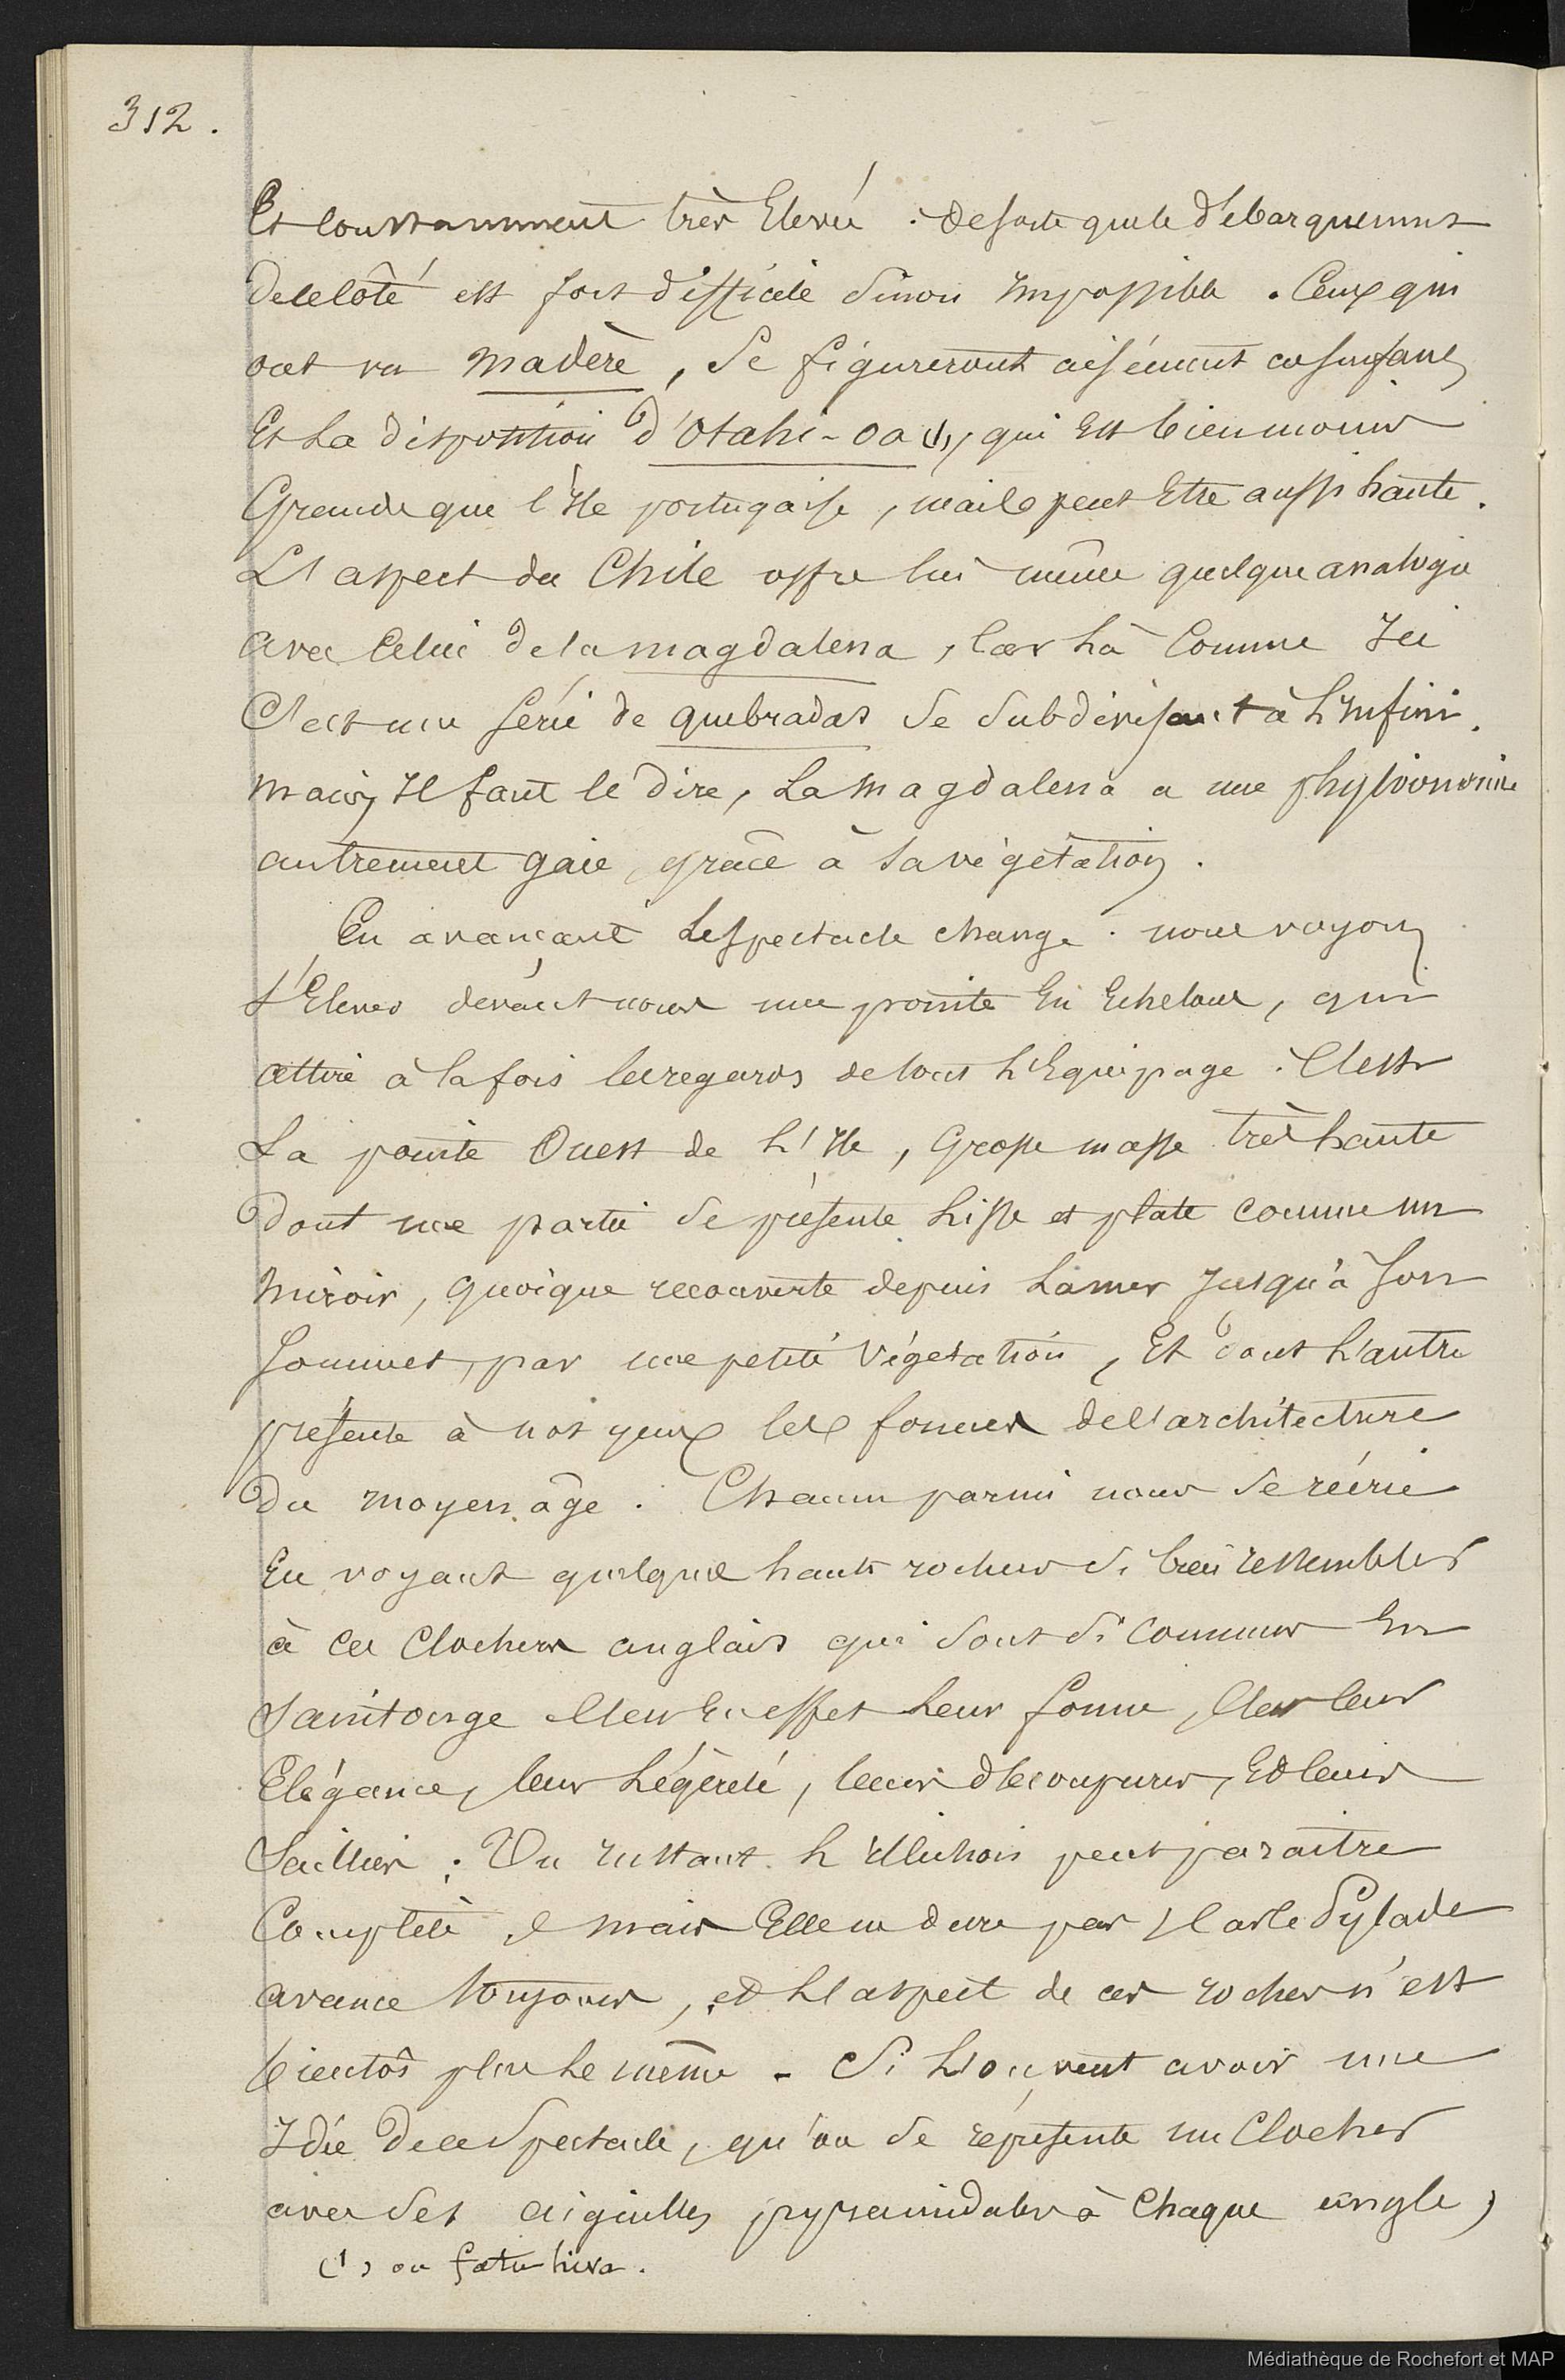 312.
Est constamment très Elevée : de sorte que le débarquement
de ce côté est fort difficile sinon Impossible. Ceux qui
ont vu Madère, se figureront aisément
Et La disposition d'Otahi-oa (1), qui Est bien moins
Grande que l'Ile portugaise, mais peut Etre aussi haute.
L'aspect du Chile offre lui même quelque analogie
avec Celui de la magdalena, Car là Comme Ici
C'est une série de quebradas se subdivisant à L'Infini.
mais, Il faut le dire, La magdalena a une physionomie
autrement gaie, grâce à sa végétation.
En avançant Le spectacle change : nous voyons
s'Elever devant nous une pointe En Echelons, qui
attire à la fois les regards de tout L'Equipage. C'est
La pointe Ouest de L'Ile, Grosse masse très haute
dont une partie se présente Lisse et plate comme un
Miroir, quoique recouverte depuis La mer Jusqu'à son
sommet, par une petite Végétation, Et dont L'autre
présente à nos yeux les formes de l'architecture
du moyen âge. Chacun parmi nous se récrie
En voyant quelques hauts rochers si bien ressembler
à ces Clochers anglais qui sont si Communs En
Saintonge C'est En effet Leur forme, C'est leur
Elégance, leur Légèreté, leurs découpures, Et leurs
Saillies : Un Instant L'Illusion peut paraître
Complète mais Elle ne dure pas, Car le Pylade
avance toujours, et L'aspect de ces rochers n'est
bientôt plus Le même - Si L'on veut avoir une
Idée de ce Spectacle, qu'on se représente un Clocher
avec des aiguilles pyramidales à Chaque angle,
(1) ou fatu hiva.
Médiathèque de Rochefort et MAP